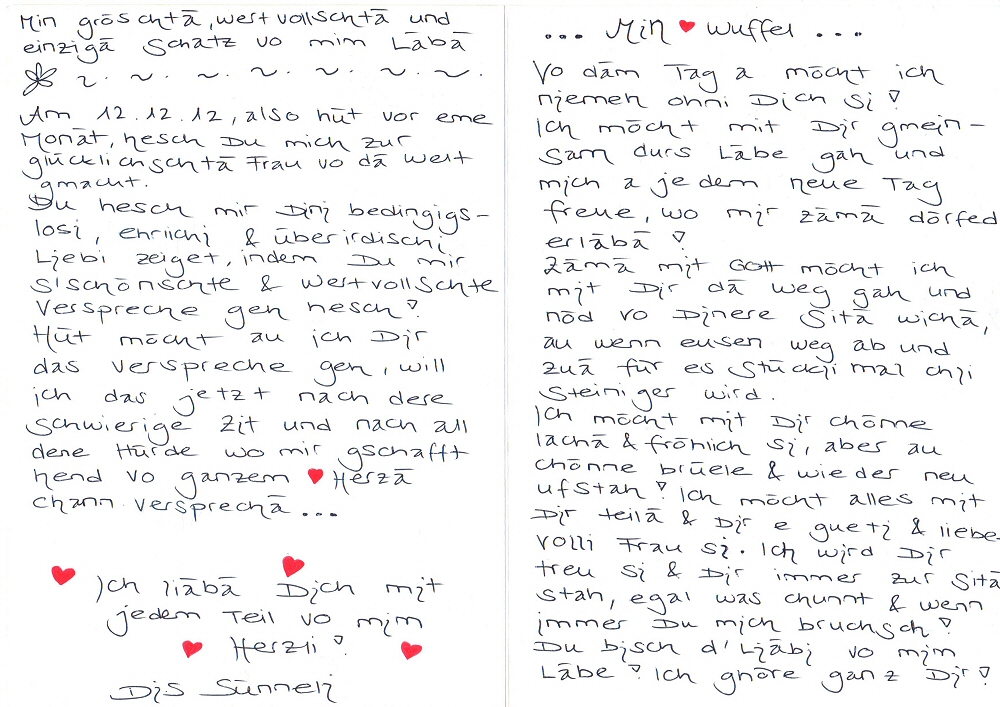 Min gröschtä, wertvollschtä und
einzigä Schatz vo mim Läbä
Am 12.12.12, also hüt vor eme
Monät, hesch Du mich zur
glücklichschtä Frau vo dä Welt
gmacht.
Du hesch mir Dini bedingigs-
losi, ehrlichi & überirdischi
Liebi zeiget, indem Du mir
s'schönischte & wertvollschte
Verspreche gen hesch!
Hüt möcht au ich Dir
das verspreche gen, will
ich das jetzt nach dere
schwierige Zit und nach all
dene Hürde wo mir gschafft
hend vo ganzem ♥ Herzä
chann versprechä...
Ich liäbä Dich mit
jedem Teil vo mim
Herzli!
Dis Sünneli
... Min ♥ Wuffel ...
Vo däm Tag a möcht ich
niemeh ohni Dich si!
Ich möcht mit Dir gmein-
sam durs Läbe gah und
mich a jedem neue Tag
freue, wo mir zämä dörfed
erläbä!
Zämä mit GOTT möcht ich
mit Dir dä weg gah und
nöd vo Dinere Sitä wichä,
au wenn eusen weg ab und
zuä für es Stückli mal chli
steiniger wird.
Ich möcht mit Dir chönne
lachä & fröhlich si, aber au
chönne brüele & wieder neu
ufstah! Ich möcht alles mit
Dir teilä & Dir e gueti & liebe-
volli Frau si. Ich wird Dir
treu si & Dir immer zur Sitä
stah, egal was chunnt & wenn
immer Du mich bruchsch!
Du bisch d'Liäbi vo mim
Läbe! Ich ghöre ganz Dir!